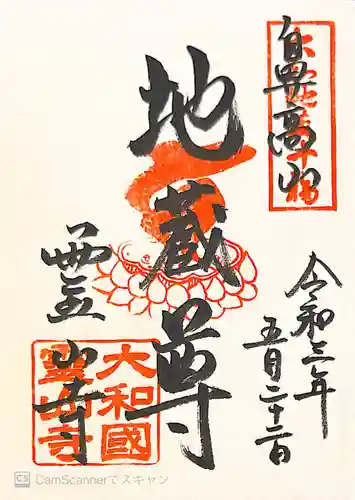 鼻高山
地蔵尊
令和三年
五月二十二日
霊山寺
大和國
霊山寺
CamScannerでスキャン